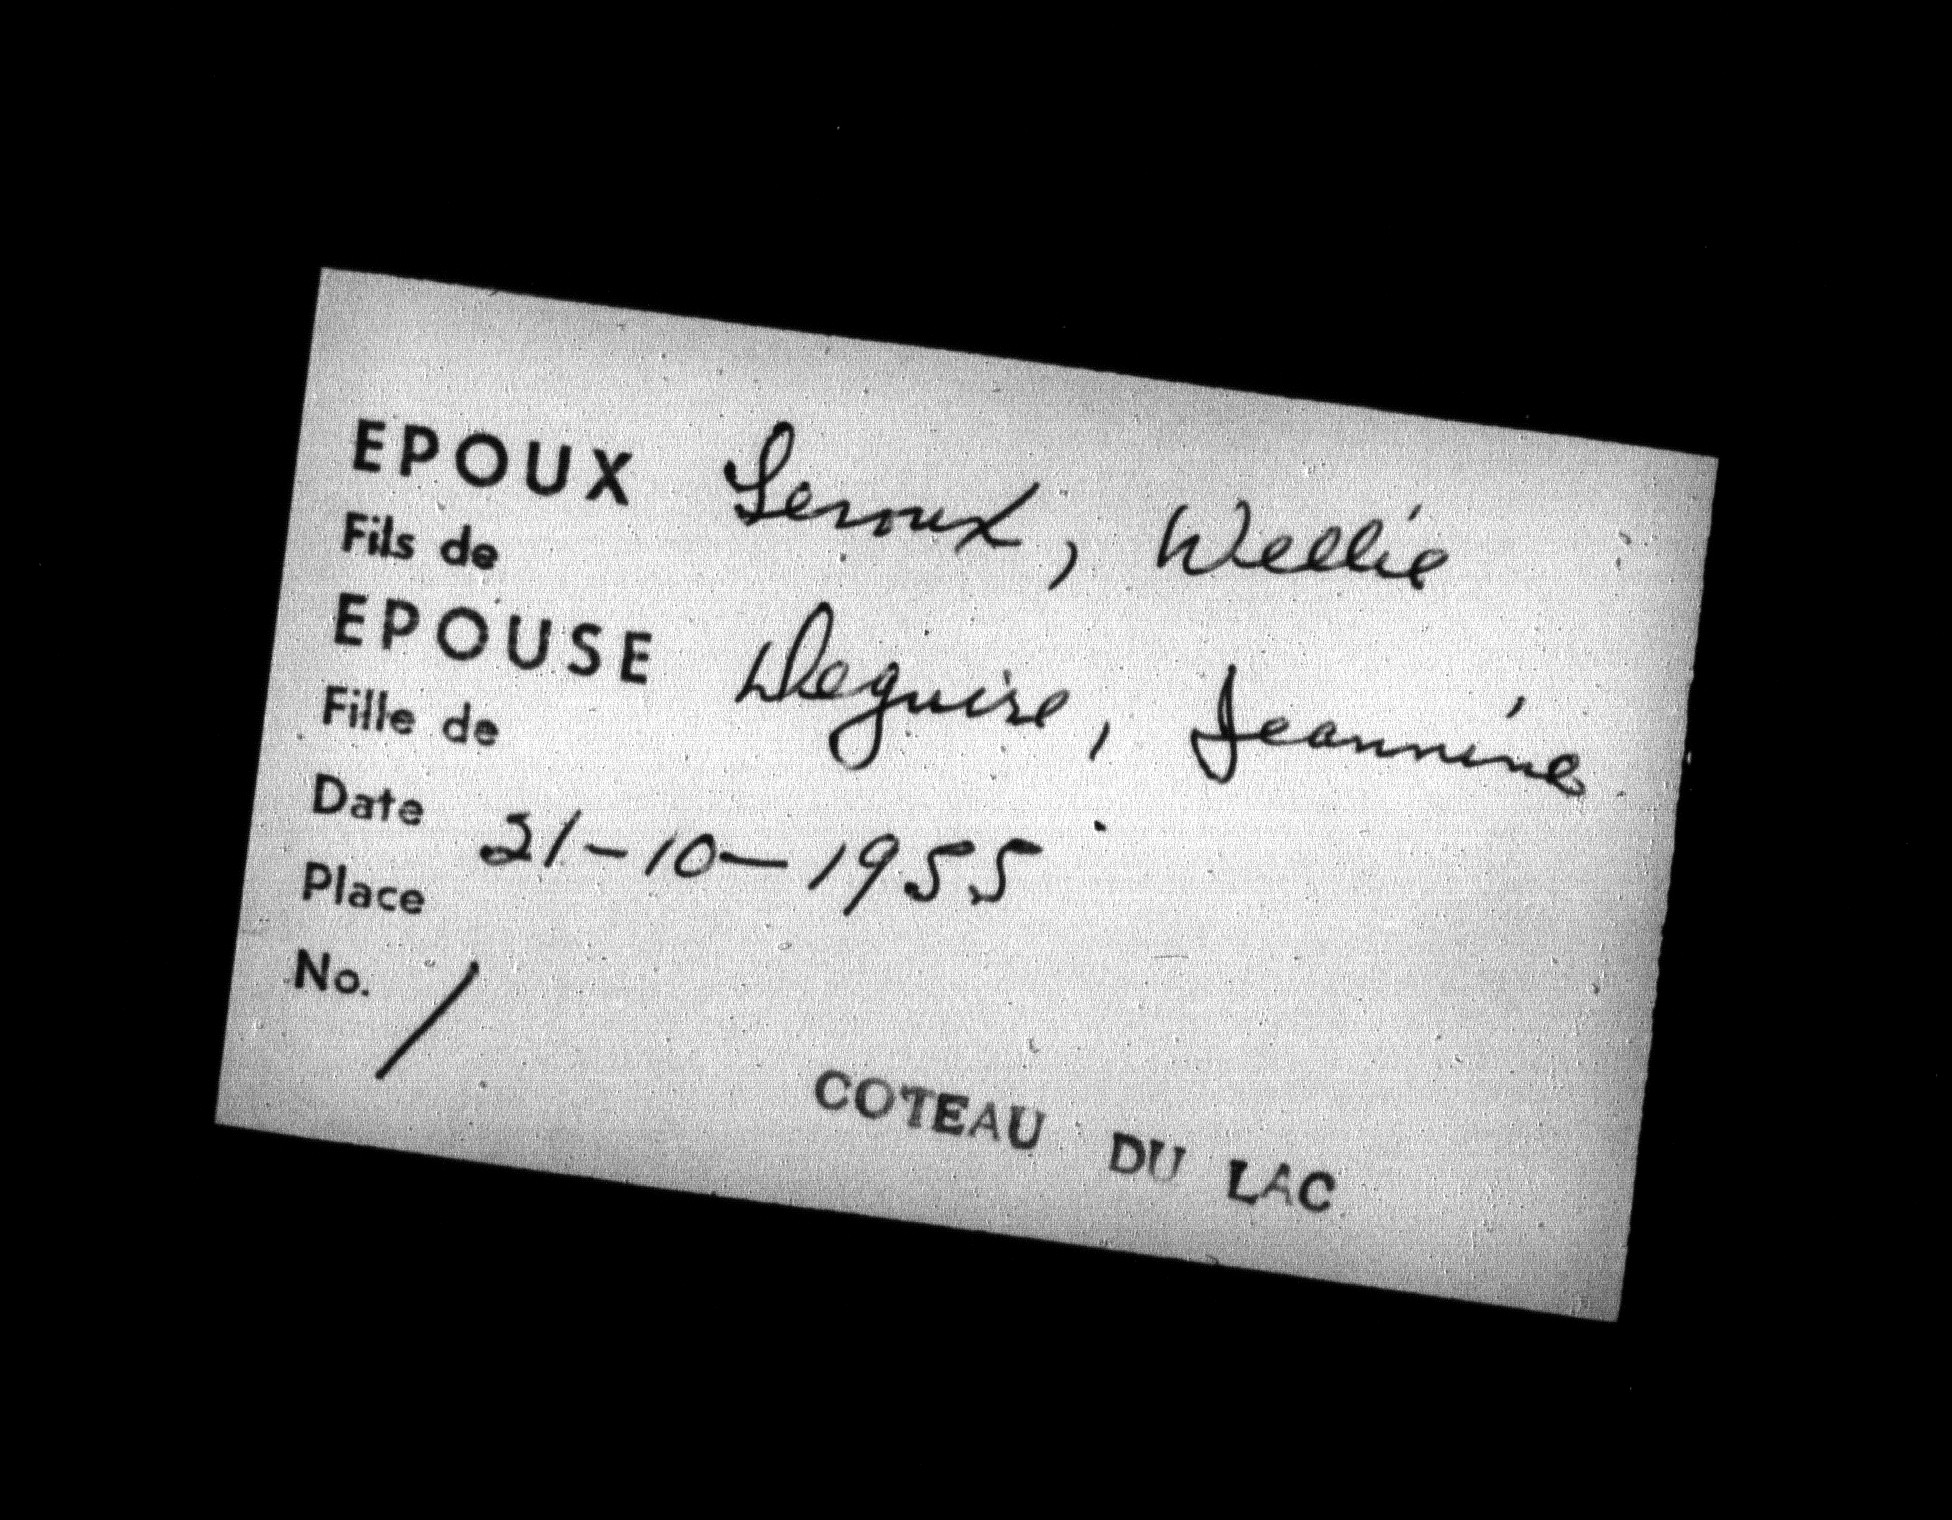 EPOUX Leroux, Wellie
Fils de
EPOUSE Deguire, Jeannine
Fille de
Date 21-10-1955
Place
No. 1
COTEAU DU LAC